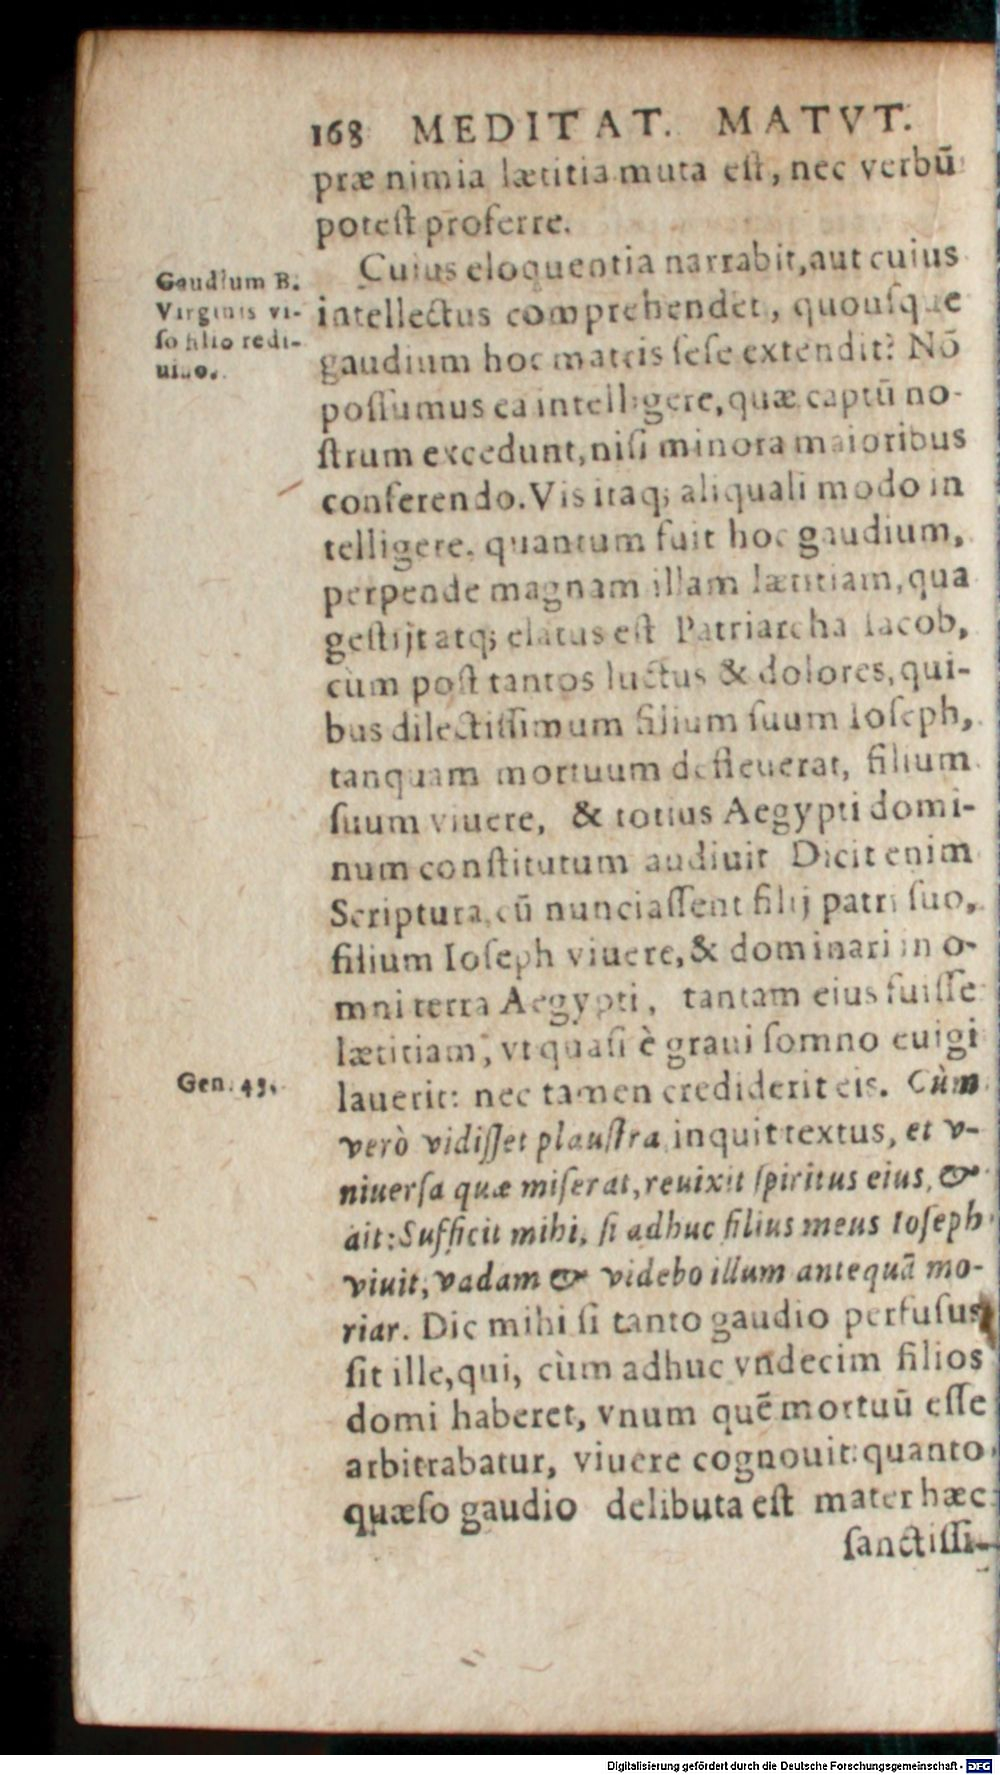 168 MEDITAT. MATVT.
præ nimia lætitia muta eſt, nec verbū
poteſt proferre.
Cuius eloquentia narrabit, aut cuius
intellectus comprehendet, quouſque
gaudium hoc matris ſeſe extendit? Nō
poſſumus ea intelligere, quæ captū no-
ſtrum excedunt, niſi minora maioribus
conferendo. Vis itaq; aliquali modo in
telligere. quantum fuit hoc gaudium,
perpende magnam illam lætitiam, qua
geſtijt atq; elatus eſt Patriarcha Iacob,
cùm poſt tantos luctus & dolores, qui-
bus dilectiſſimum filium ſuum Ioſeph,
tanquam mortuum defleuerat, filium
ſuum viuere, & totius Aegypti domi-
num conſtitutum audiuit Dicit enim
Scriptura, cū nunciaſſent filij patri ſuo,
filium Ioſeph viuere, & dominari in o-
mni terra Aegypti, tantam eius fuiſſe
lætitiam, vt quaſi è graui ſomno euigi
lauerit: nec tamen crediderit eis. Cùm
verò vidiſſet plauſtra inquit textus, et v-
niuerſa quæ miſerat, reuixit ſpiritus eius, &
ait: Sufficit mihi, ſi adhuc filius meus Ioſeph
viuit, vadam & videbo illum antequā mo-
riar. Dic mihi ſi tanto gaudio perfuſus
ſit ille, qui, cùm adhuc vndecim filios
domi haberet, vnum quē mortuū eſſe
arbitrabatur, viuere cognouit: quanto
quæſo gaudio delibuta eſt mater hæc
ſanctiſſi-
Gaudium B.
Virginis vi-
ſo filio redi-
uiuo.
Gen. 45.
Digitalisierung gefördert durch die Deutsche Forschungsgemeinschaft - DFG